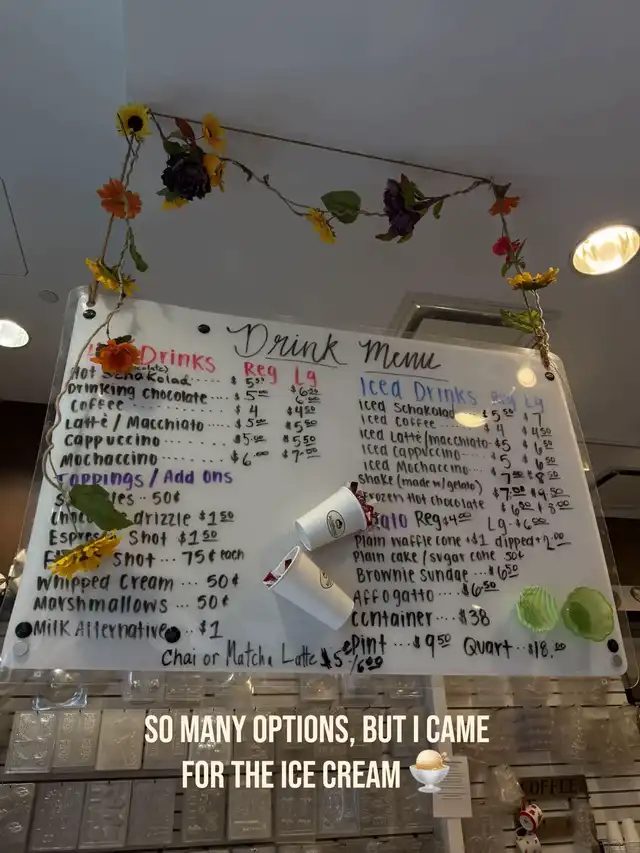 Drink Menu
Drinks Reg Lg
Hot Schokolad ..... $5.50 $6.50
Drinking chocolate .... $5.00
Coffee ............ $4 $4.50
Lattè / Macchiato ..... $5.00 $5.50
Cappuccino ..... $5.00 $5.50
Mochaccino ..... $6.00 $7.00
Toppings / Add Ons
.. 50¢
drizzle $1.50
Espresso Shot $1.50
Shot ... 75¢ each
Whipped Cream ... 50¢
Marshmallows ... 50¢
Milk Alternative .. $1
Chai or Matcha Latte $5 / 6.00
Iced Drinks Reg Lg
Iced Schokolad $5.50 $7
Iced Coffee $4 $4.50
Iced Lattè/macchiato $5
Iced Cappuccino $5
Iced Mochaccino
Shake (made w/gelato) $8.50
Frozen Hot Chocolate
Reg $4.00 Lg $6.00
Plain waffle cone +$1 dipped +2.00
Plain cake/sugar cone 50¢
Brownie Sundae ... $6.50
Affogatto ... $6.50
Container ... $38
Pint ... $9.50 Quart .. $18.00
SO MANY OPTIONS, BUT I CAME
FOR THE ICE CREAM 🍨
COFFEE